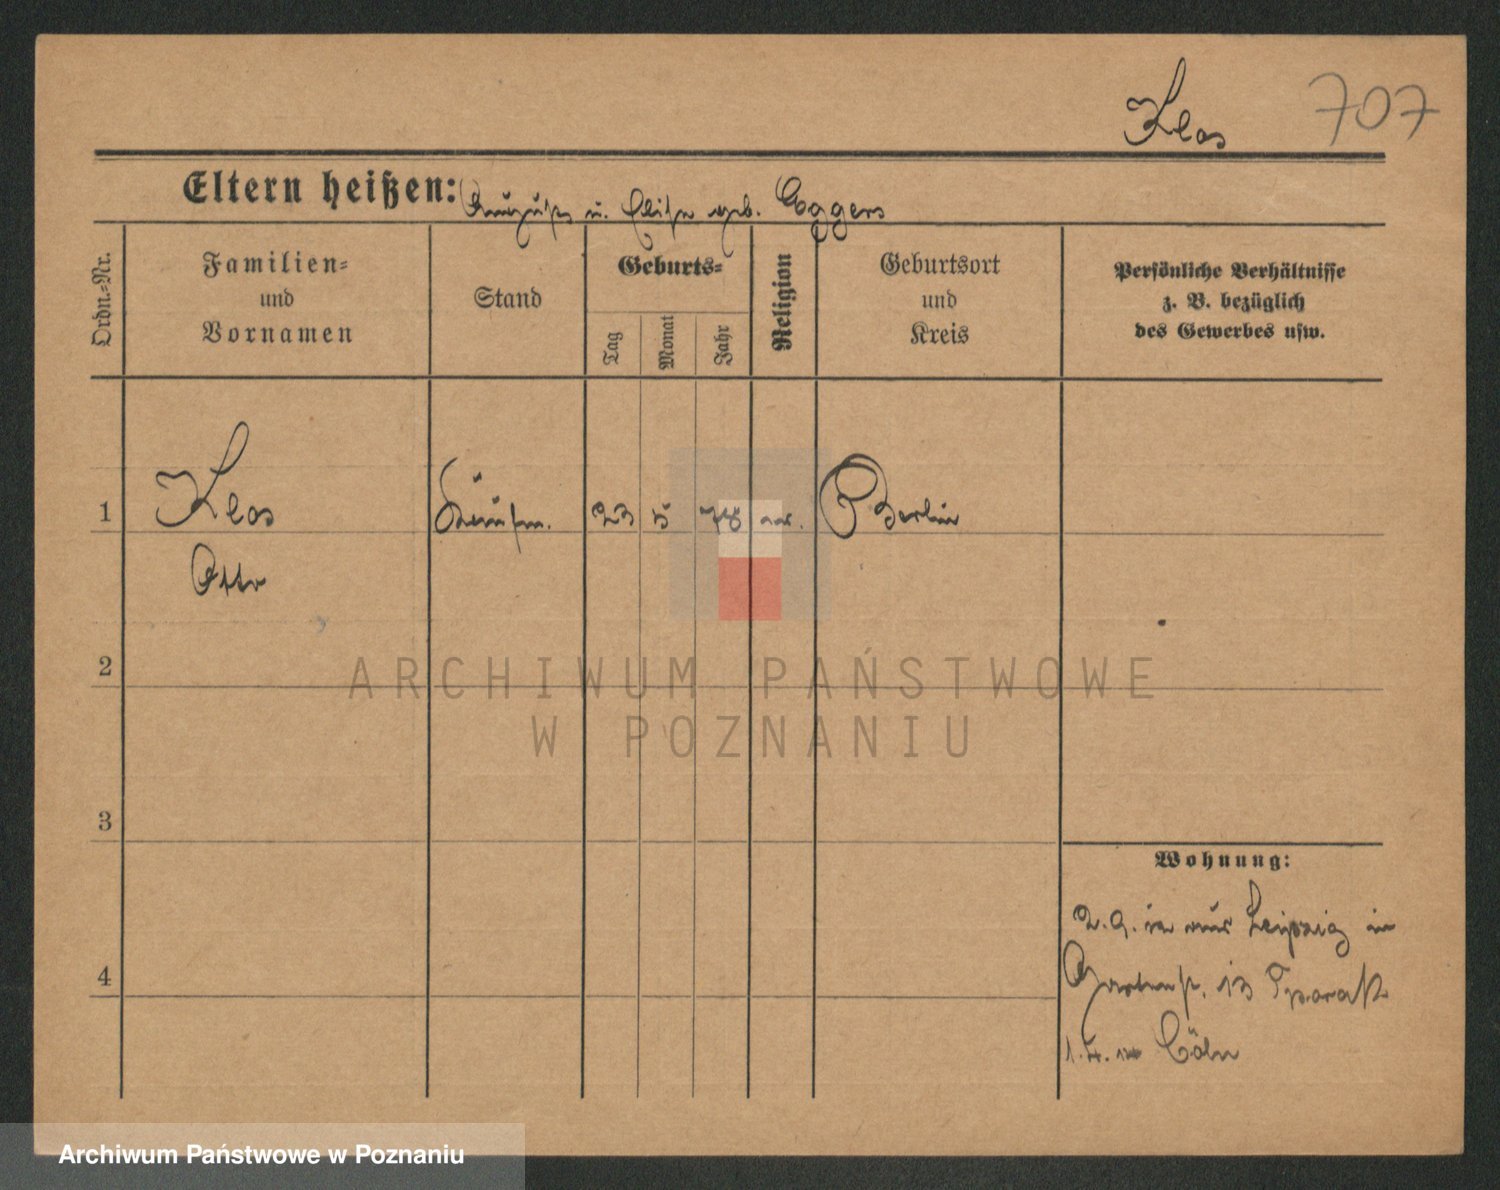 Klos 707
Eltern heißen: August u. Elise geb. Eggers
Ordn.-Nr.
Familien-
und
Vornamen
Stand
Geburts-
Tag
Monat
Jahr
Religion
Geburtsort
und
Kreis
Persönliche Verhältnisse
z. B. bezüglich
des Gewerbes usw.
1 Klos Kaufm. 23 5 78 ev. Berlin
Otto
2
3
4
Wohnung:
2.9. aus Leipzig in
Gartenstr. 13
1.4. Cöln
ARCHIWUM PAŃSTWOWE
W POZNANIU
Archiwum Państwowe w Poznaniu